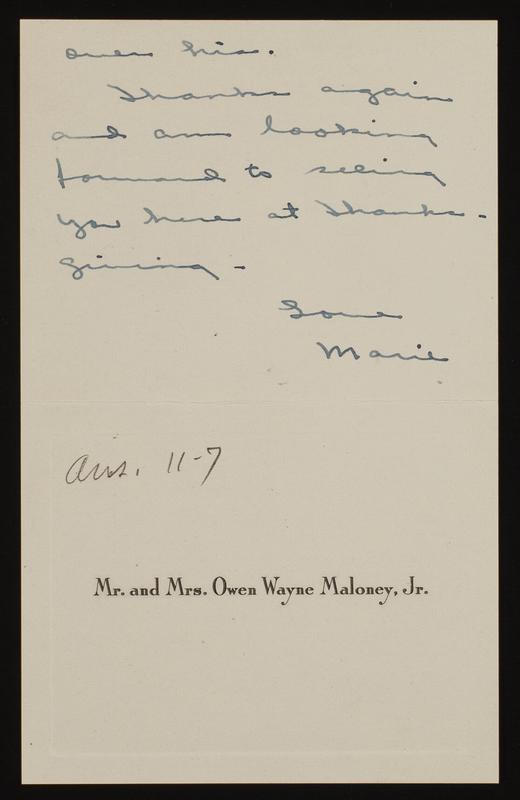 over his.
Thanks again
and am looking
forward to seeing
you here at Thanks-
giving -
Love
Marie
Ans. 11-7
Mr. and Mrs. Owen Wayne Maloney, Jr.